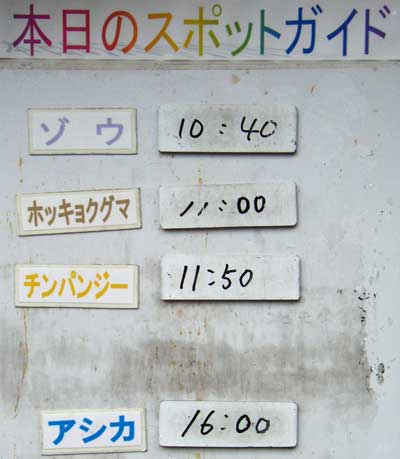 本日のスポットガイド
ゾウ 10:40
ホッキョクグマ 11:00
チンパンジー 11:50
アシカ 16:00